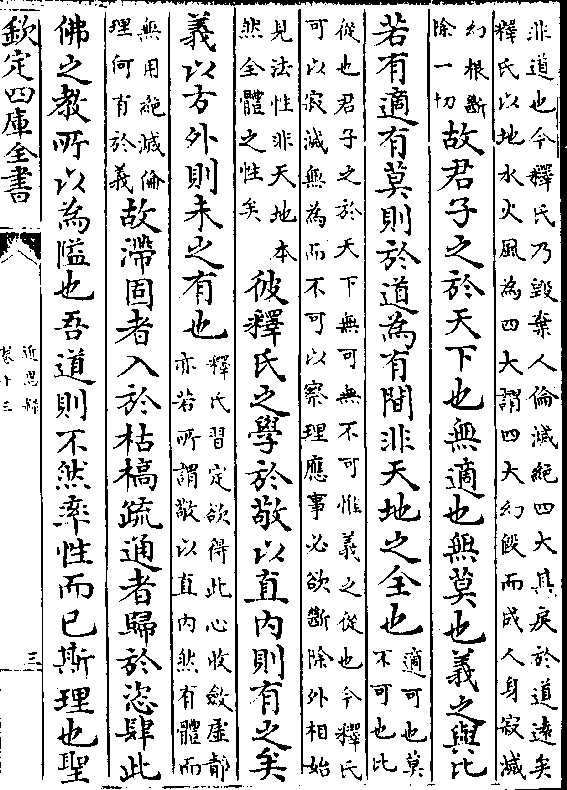 非道也今釋氏乃毀棄人倫滅絕四大其戾於道遠矣
釋氏以地水火風為四大謂四大幻假而成人身寂滅
幻根斷
除一切
故君子之於天下也無適也無莫也義之與比
若有適有莫則於道為有間非天地之全也
適可也莫
不可也比
從也君子之於天下無可無不可惟義之從也今釋氏
可以寂滅無為而不可以察理應事必欲斷除外相始
見法性非天地本
然全體之性矣
彼釋氏之學於敬以直内則有之矣
義以方外則未之有也
釋氏習定欲得此心收斂虛靜
亦若所謂敬以直内然有體而
無用絕滅倫
理何有於義
故滯固者入於枯槁疏通者歸於恣肆此
佛之敎所以為隘也吾道則不然率性而已斯理也聖
欽定四庫全書
近思錄
卷十三
三